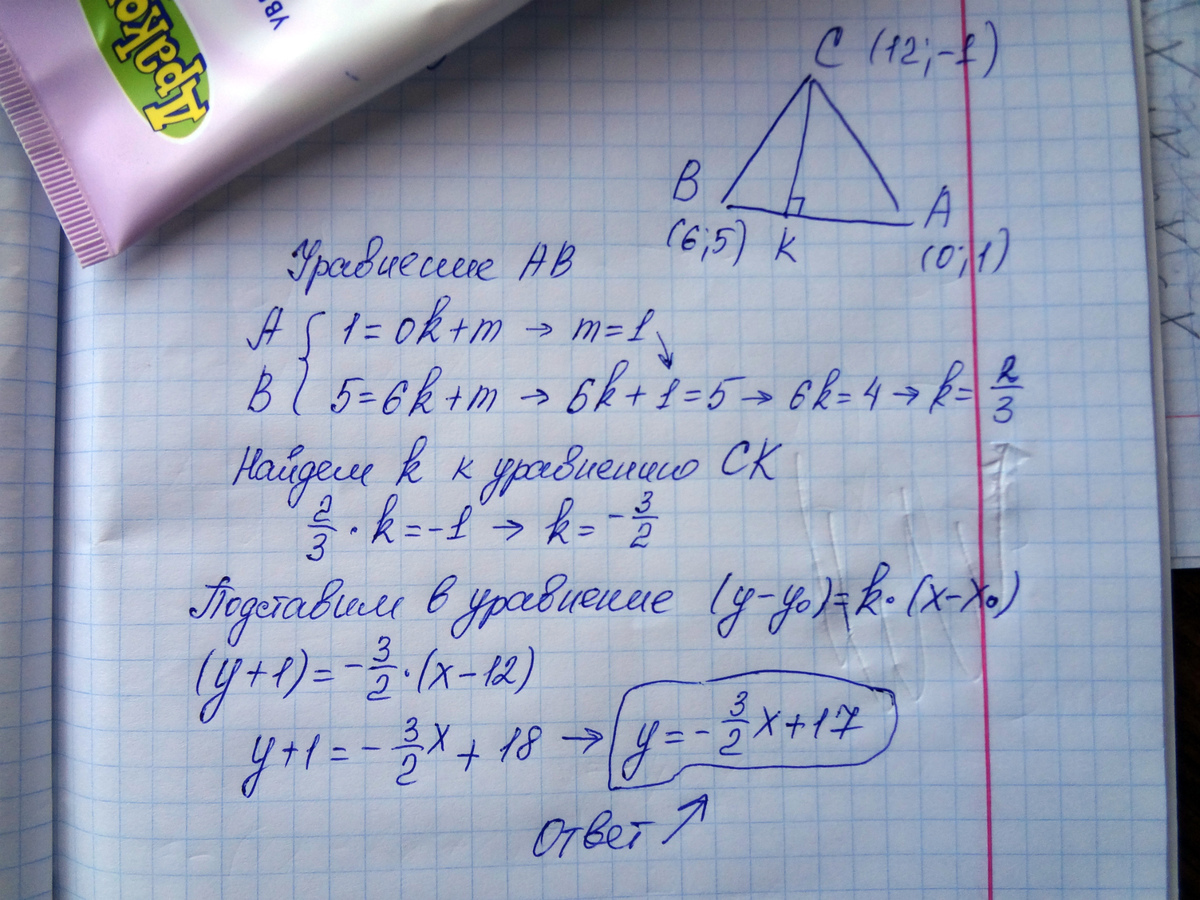 Дракош
УВ
C (12;-1)
B
A
(6;5) K
(0;1)
Уравнение AB
A { 1=0k+m → m=1
B { 5=6k+m → 6k+1=5 → 6k=4 → k=2/3
Найдем k к уравнению CK
2/3 · k=-1 → k=-3/2
Подставим в уравнение (y-y₀)=k·(x-x₀)
(y+1)=-3/2·(x-12)
y+1=-3/2x+18 → y=-3/2x+17
Ответ ↗